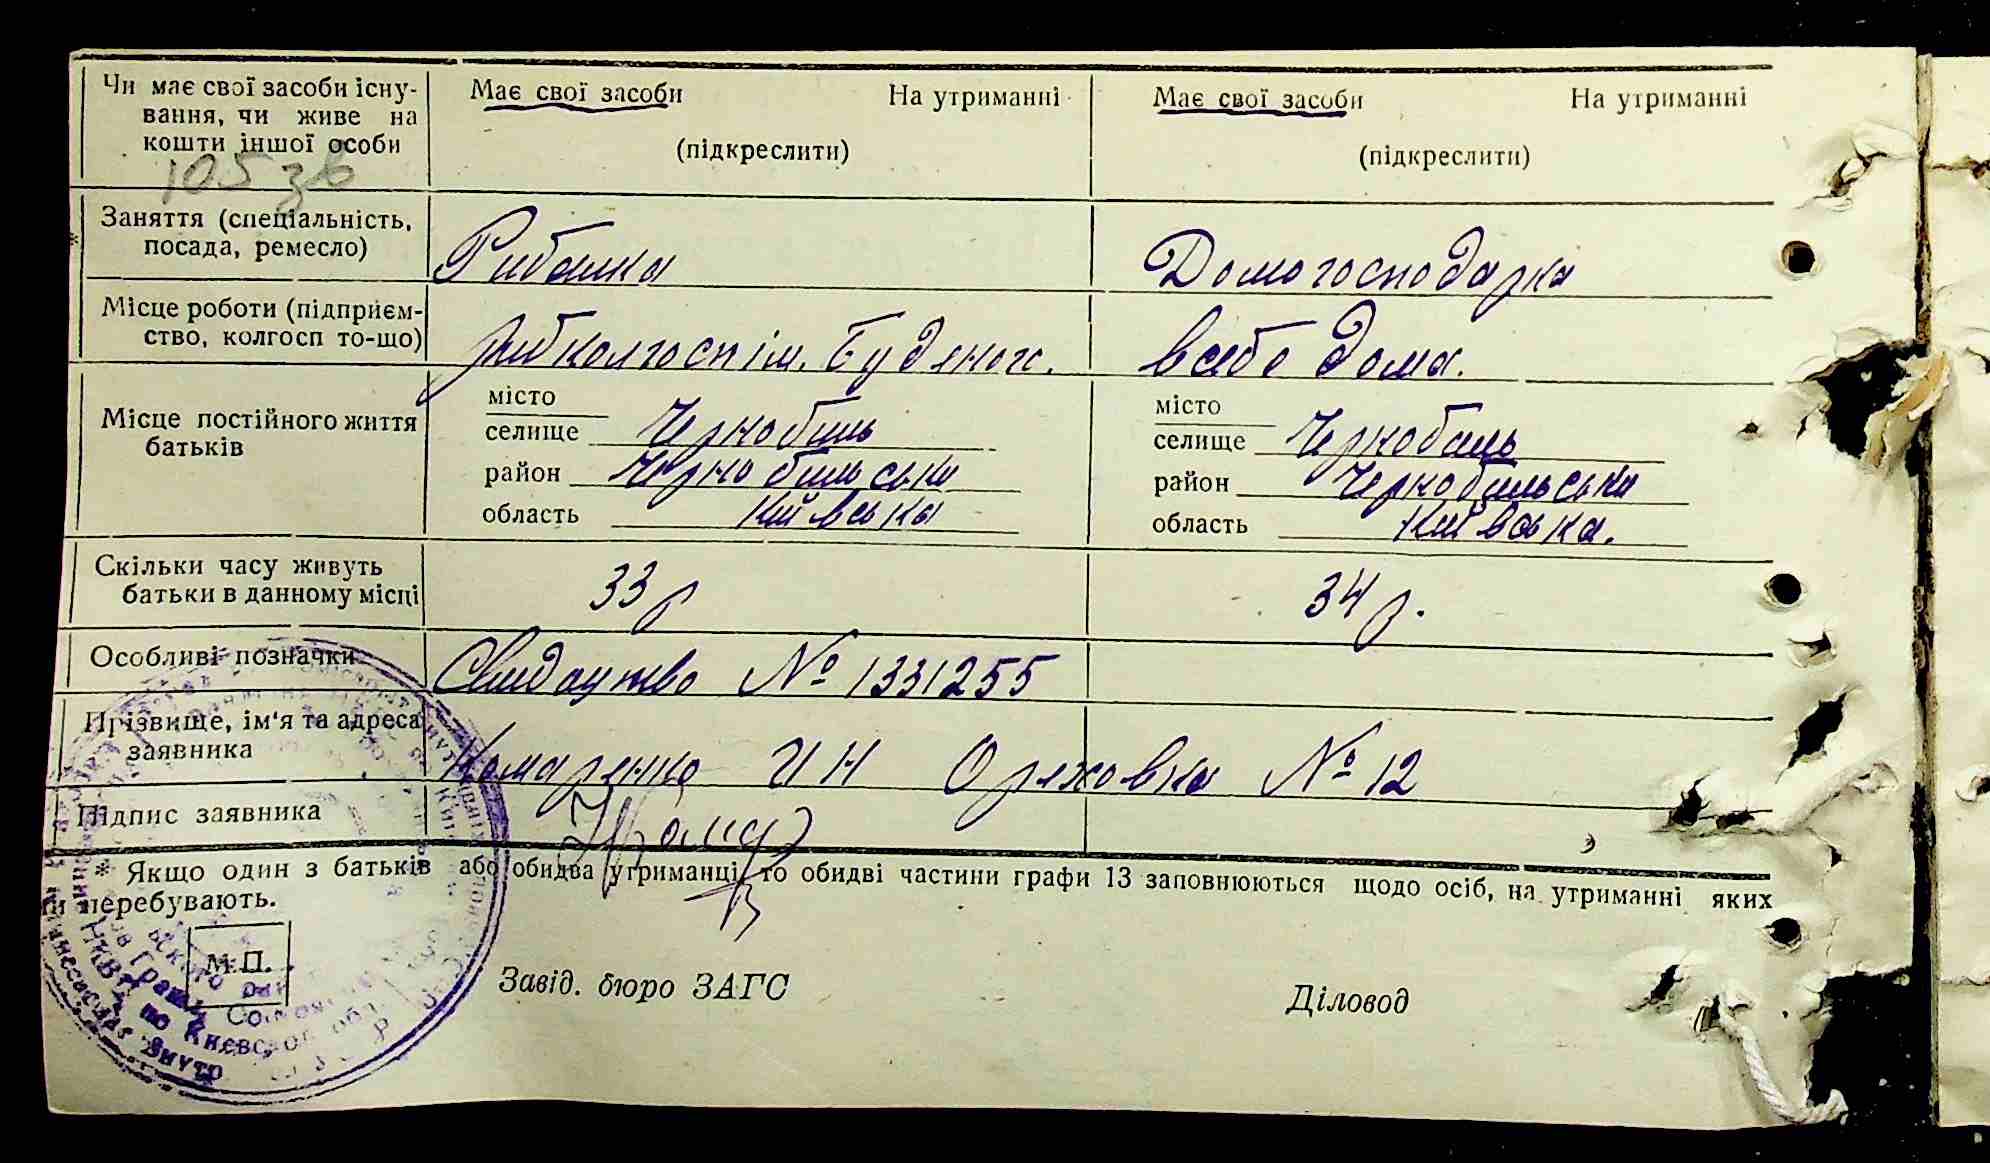 Чи має свої засоби існу-
вання, чи живе на
кошти іншої особи
105 зв
Має свої засоби На утриманні
(підкреслити)
Має свої засоби На утриманні
(підкреслити)
* Заняття (спеціальність,
посада, ремесло)
Рибалка
Домогосподарка
Місце роботи (підприєм-
ство, колгосп то-що)
рибколгосп ім. Буденог.
в себе дома.
Місце постійного життя
батьків
місто
селище Чернобиль
район Чернобильська
область Київська
місто
селище Чернобиль
район Чернобильська
область Київська.
Скільки часу живуть
батьки в данному місці
33 р
34 р.
Особливі позначки
Свидоцтво № 1331255
Прізвище, ім'я та адреса
заявника
Комаренко И Н Оряховка № 12
Підпис заявника
* Якщо один з батьків або обидва утриманці, то обидві частини графи 13 заповнюються щодо осіб, на утриманні яких
перебувають.
М.П.
Завід. бюро ЗАГС
Діловод